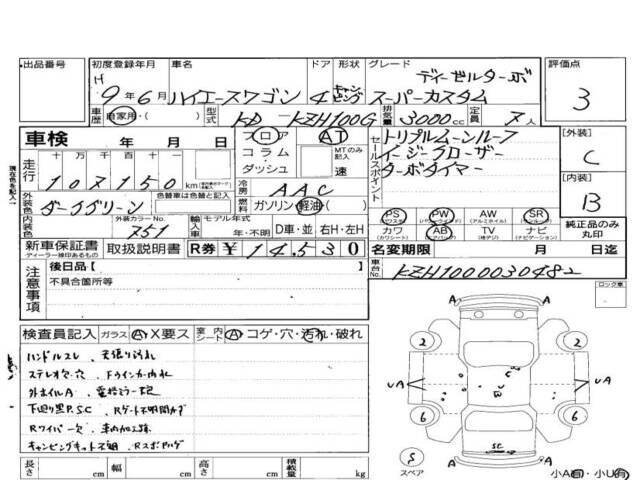 出品番号 初度登録年月 車名 ドア 形状 グレード 評価点
H 9年6月 ハイエースワゴン 4 キャンピング ディーゼルターボ スーパーカスタム 3
車歴 自家用 型式 KD-KZH100G 排気量 3000cc 定員 人
車検 年 月 日 フロア AT トリプルムーンルーフ
コラム MTのみ記入 イージークローザー [外装] C
走行 十万 千 百 十 一 ダッシュ 速 ターボタイマー
107150 km 冷房 AAC セールスポイント [内装] B
外装色 色替車は色替と記入 燃料 ガソリン・軽油
ダークグリーン PS PW AW SR
外装カラーNo. 751 輸入車 モデル年式 年・不明 D車・並 右H・左H カワ AB TV ナビ
内装色 純正品のみ丸印
新車保証書 取扱説明書 R券 ¥14,530 名変期限 月 日迄
ディーラー線印あるもの
注意事項 後日品【 】 車台No. KZH1000030482
不具合箇所等 ロック車
検査員記入 ガラス A・X要ス 室内シート A・コゲ・穴・汚れ・破れ
ハンドルスレ、天張り汚れ
ステレオ欠穴
外ホイルA
下廻り黒P.S.C
Rワイパー欠
キャンピングキット不明
長さ cm 幅 cm 高さ cm 積載量 kg
A A
2 2
UA UA
6 6
S スペア A SC A
小A有・小U有